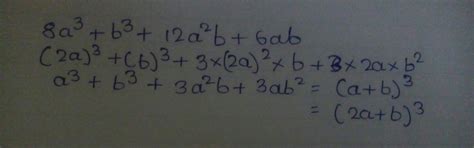 8a³ + b³ + 12a²b + 6ab
(2a)³ + (b)³ + 3×(2a)²×b + 3×2a×b²
a³ + b³ + 3a²b + 3ab² = (a+b)³
= (2a+b)³